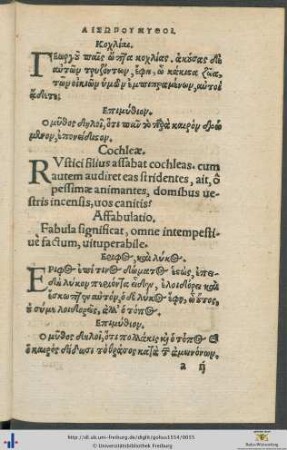 ΑΙΣΩΠΟΥ ΜΥΘΟΙ.
Κοχλίαι.
Γεωργοῦ παῖς ὤπτα κοχλίας. ἀκούσας δὲ
αὐτῶν τρυζόντων, ἔφη, ὦ κάκιστα ζῶα,
τῶν οἰκιῶν ὑμῶν ἐμπιπραμένων, αὐτοὶ
ᾄδετε;
Ἐπιμύθιον.
Ὁ μῦθος δηλοῖ, ὅτι πᾶν τὸ παρὰ καιρὸν δρώ
μενον, ἐπονείδιστον.
Cochleæ.
RVstici filius assabat cochleas. cum
autem audiret eas stridentes, ait, ô
pessimæ animantes, domibus ue-
stris incensis, uos canitis?
Affabulatio.
Fabula significat, omne intempesti-
uè factum, uituperabile.
Ἔριφος, καὶ λύκος.
Ἔριφος ἐπί τινος δώματος ἑστὼς, ἐπει-
δὴ λύκον παριόντα εἶδεν, ἐλοιδόρει καὶ
ἔσκωπτεν αὐτόν, ὁ δὲ λύκος ἔφη, ὦ οὗτος,
οὐ σύ με λοιδορεῖς, ἀλλ' ὁ τόπος.
Ἐπιμύθιον.
Ὁ μῦθος δηλοῖ, ὅτι πολλάκις καὶ ὁ τόπος καὶ
ὁ καιρὸς δίδωσι τὸ θράσος κατὰ τῶν ἀμεινόνων.
a ij
http://dl.ub.uni-freiburg.de/diglit/gallus1554/0015
© Universitätsbibliothek Freiburg